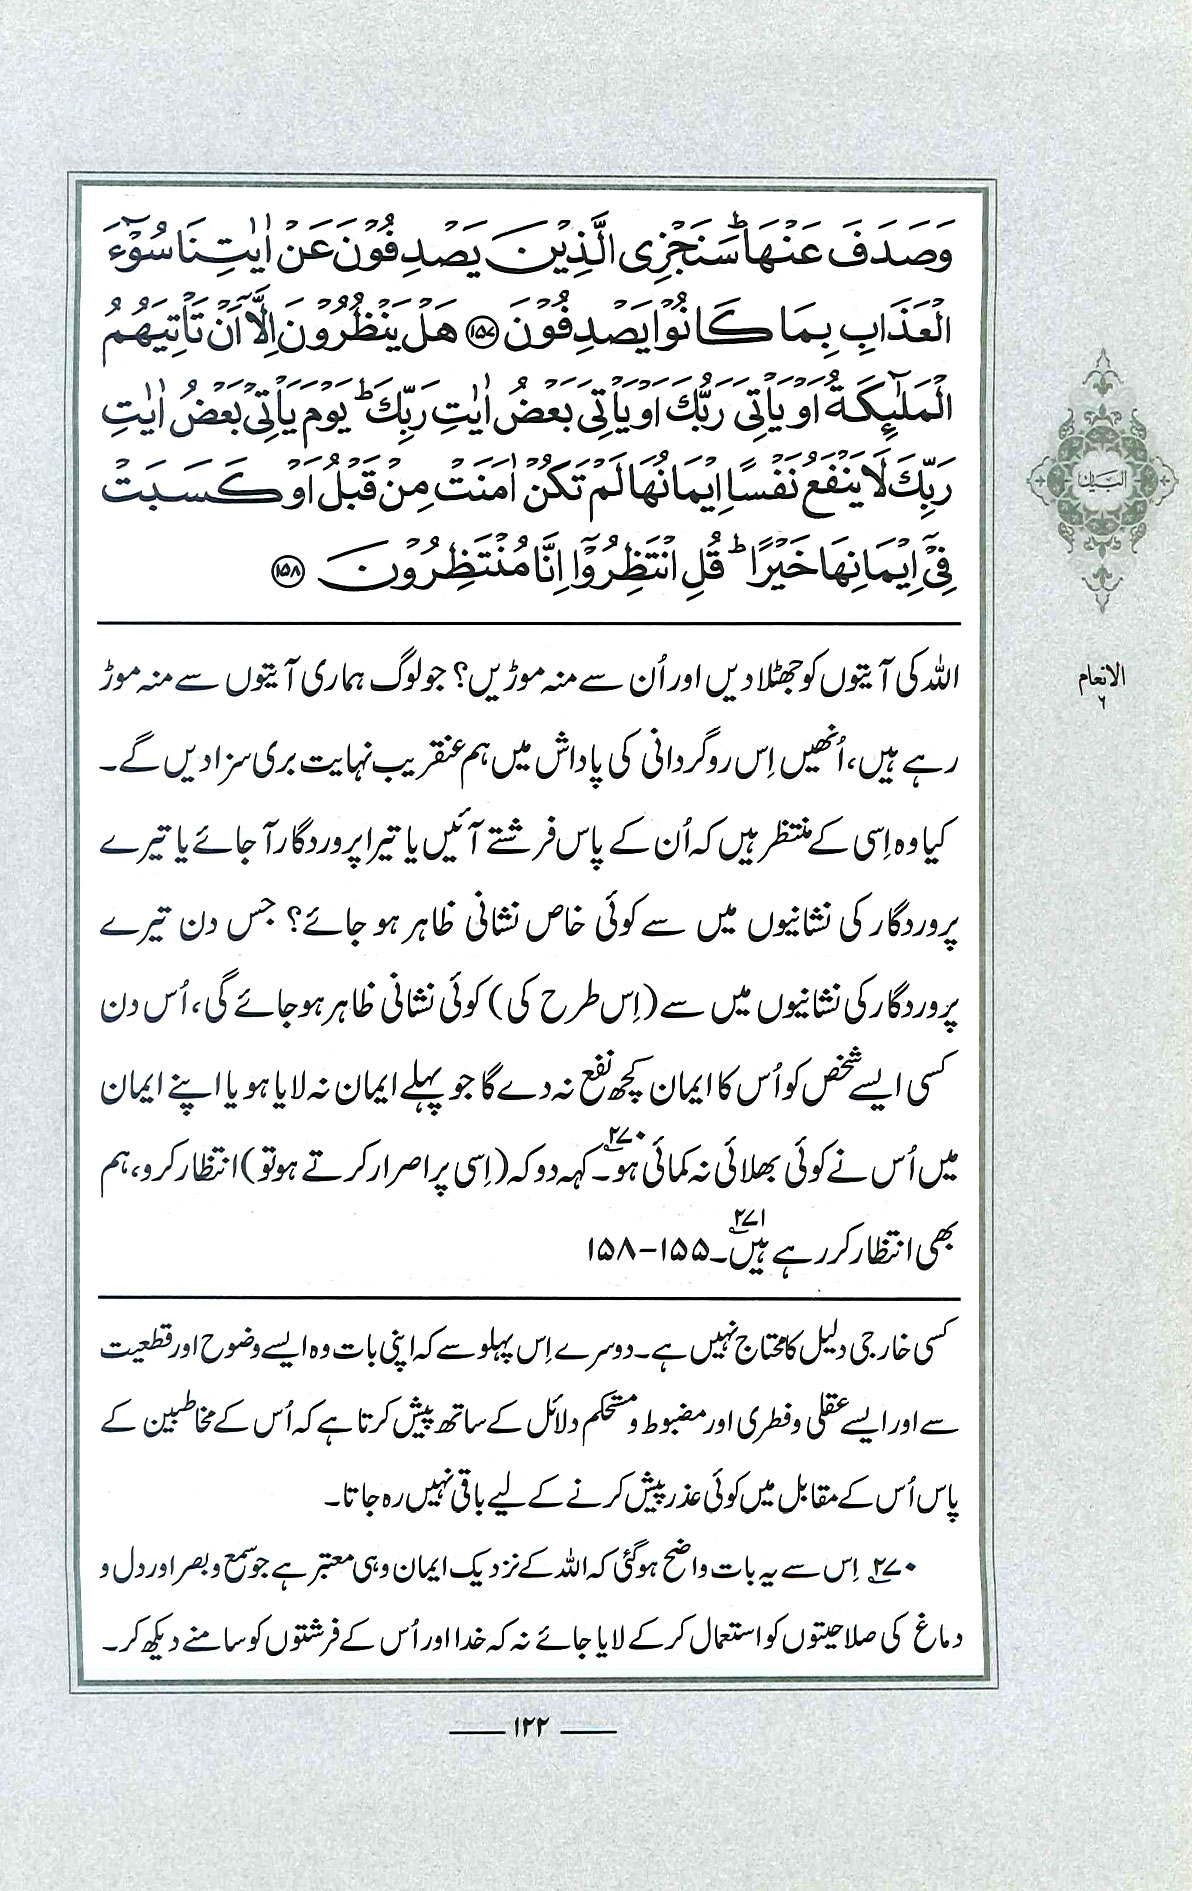 وَصَدَفَ عَنْهَا ؕ سَنَجْزِی الَّذِیْنَ یَصْدِفُوْنَ عَنْ اٰیٰتِنَا سُوْٓءَ
الْعَذَابِ بِمَا كَانُوْا یَصْدِفُوْنَ ﴿۱۵۷﴾ هَلْ یَنْظُرُوْنَ اِلَّاۤ اَنْ تَاْتِیَهُمُ
الْمَلٰٓئِكَةُ اَوْ یَاْتِیَ رَبُّكَ اَوْ یَاْتِیَ بَعْضُ اٰیٰتِ رَبِّكَ ؕ یَوْمَ یَاْتِیْ بَعْضُ اٰیٰتِ
رَبِّكَ لَا یَنْفَعُ نَفْسًا اِیْمَانُهَا لَمْ تَكُنْ اٰمَنَتْ مِنْ قَبْلُ اَوْ كَسَبَتْ
فِیْۤ اِیْمَانِهَا خَیْرًا ؕ قُلِ انْتَظِرُوْۤا اِنَّا مُنْتَظِرُوْنَ ﴿۱۵۸﴾
البیان
الانعام
۶
اللہ کی آیتوں کو جھٹلا دیں اور اُن سے منہ موڑیں؟ جو لوگ ہماری آیتوں سے منہ موڑ
رہے ہیں، اُنھیں اِس روگردانی کی پاداش میں ہم عنقریب نہایت بری سزا دیں گے۔
کیا وہ اِسی کے منتظر ہیں کہ اُن کے پاس فرشتے آئیں یا تیرا پروردگار آ جائے یا تیرے
پروردگار کی نشانیوں میں سے کوئی خاص نشانی ظاہر ہو جائے؟ جس دن تیرے
پروردگار کی نشانیوں میں سے (اِس طرح کی) کوئی نشانی ظاہر ہو جائے گی، اُس دن
کسی ایسے شخص کو اُس کا ایمان کچھ نفع نہ دے گا جو پہلے ایمان نہ لایا ہو یا اپنے ایمان
میں اُس نے کوئی بھلائی نہ کمائی ہو۔۲۷۰ کہہ دو کہ (اِسی پر اصرار کرتے ہو تو) انتظار کرو، ہم
بھی انتظار کر رہے ہیں۔۲۷۱ ۱۵۵-۱۵۸
کسی خارجی دلیل کا محتاج نہیں ہے۔ دوسرے اِس پہلو سے کہ اپنی بات وہ ایسے وضوح اور قطعیت
سے اور ایسے عقلی و فطری اور مضبوط و مستحکم دلائل کے ساتھ پیش کرتا ہے کہ اُس کے مخاطبین کے
پاس اُس کے مقابل میں کوئی عذر پیش کرنے کے لیے باقی نہیں رہ جاتا۔
۲۷۰ اِس سے یہ بات واضح ہو گئی کہ اللہ کے نزدیک ایمان وہی معتبر ہے جو سمع و بصر اور دل و
دماغ کی صلاحیتوں کو استعمال کر کے لایا جائے نہ کہ خدا اور اُس کے فرشتوں کو سامنے دیکھ کر۔
۱۲۲